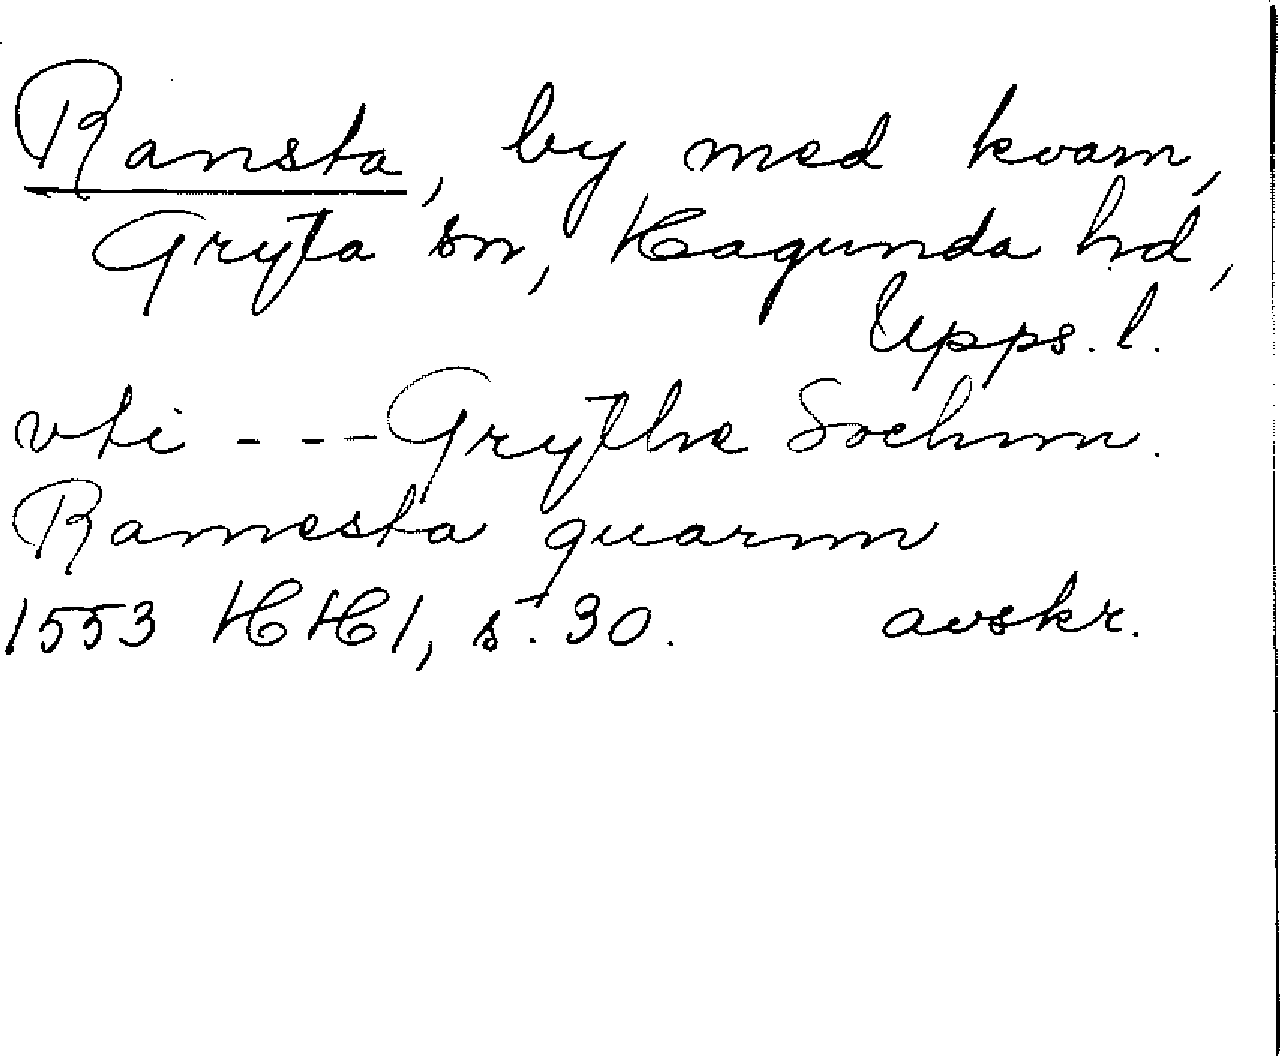 Ransta, by med kvarn,
Gryta sn, Hagunda hd,
Upps. l.
vti - - - Grythe Sochnn.
Ramesta quarnn
1553 HH 1, s. 30. avskr.